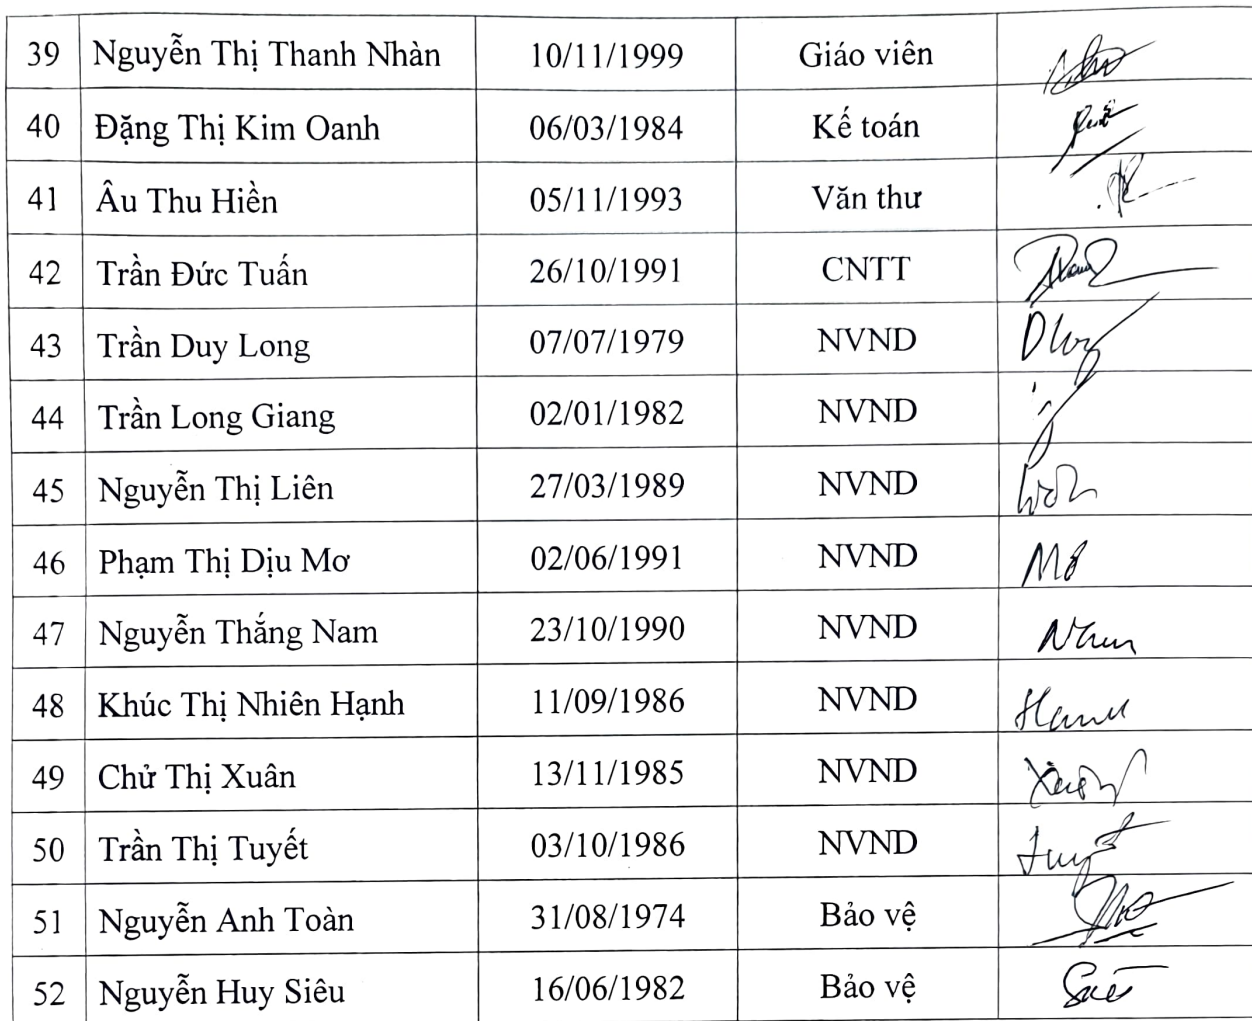 39 Nguyễn Thị Thanh Nhàn 10/11/1999 Giáo viên
40 Đặng Thị Kim Oanh 06/03/1984 Kế toán
41 Âu Thu Hiền 05/11/1993 Văn thư
42 Trần Đức Tuấn 26/10/1991 CNTT
43 Trần Duy Long 07/07/1979 NVND Dlong
44 Trần Long Giang 02/01/1982 NVND
45 Nguyễn Thị Liên 27/03/1989 NVND
46 Phạm Thị Dịu Mơ 02/06/1991 NVND Mơ
47 Nguyễn Thắng Nam 23/10/1990 NVND Nam
48 Khúc Thị Nhiên Hạnh 11/09/1986 NVND Hanh
49 Chử Thị Xuân 13/11/1985 NVND Xuân
50 Trần Thị Tuyết 03/10/1986 NVND Tuyết
51 Nguyễn Anh Toàn 31/08/1974 Bảo vệ
52 Nguyễn Huy Siêu 16/06/1982 Bảo vệ Siêu